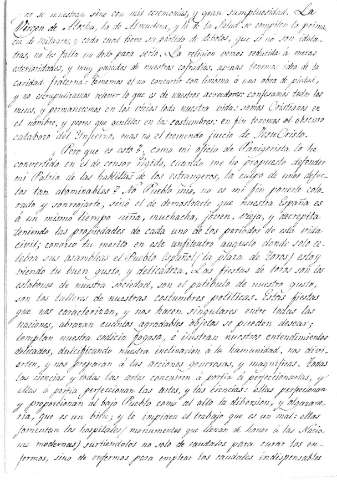 no se muestran sino con sus ceremonias, y gran sumptuosidad. La
Virgen de Atocha, la de Almudena, y la de la Salud se compiten la prima-
cia de milagros; y cada cual tiene su partido de devotos, que si no son idola-
tras, no les falta un dedo para serlo. La religion vemos reducida á meras
exterioridades, y muy pagados de nuestras cofradias, apenas tenemos idea de la
caridad fraterna: tenemos á un concurrir con limosna á una obra de piedad,
y no escrupulizamos retener lo que es de nuestros acreedores: confesamos todos los
meses, y permanecemos en los vicios toda nuestra vida: somos Cristianos en
el nombre, y peores que gentiles en las costumbres: en fin tememos el obscuro
calabozo del Infierno, mas no el tremendo juicio de Jesu Cristo.
¿Pero que es esto? ¿como mi oficio de Panegerista le he
convertido en el de censor rigido, cuando me he propuesto defender
mi Patria de las hablillas de los estrangeros, la culpo de unos defec-
tos tan abominables? No Pueblo mio, no es mi fin ponerte colo-
rado y corregirte, sino el de demostrarte que nuestra España es
á un mismo tiempo niña, muchacha, joven, vieja, y decrepita,
teniendo las propiedades de cada uno de los periodos de esta vida
civil; conozco tu merito en este anfiteatro augusto donde solo ce-
lebra sus asambleas el Pueblo Español (la plaza de Toros) estoy
viendo tu buen gusto, y delicadeza. Las fiestas de toros son los
eslabones de nuestra sociedad, son el pabulo de nuestro gusto,
son los talleres de nuestras costumbres politicas. Estas fiestas
que nos caracterizan, y nos hacen singulares entre todas las
naciones, abrazan cuantos agradables objetos se pueden desear:
templan nuestra codicia fogosa, é ilustran nuestros entendimientos
delicados, dulcificando nuestra inclinacion á la humanidad, nos divi-
erten, y nos preparan á las acciones generosas, y magnificas. Todas
las ciencias y todas las artes concurren á porfia á perfeccionarlas, y
ellas á porfia perfeccionan las artes, y las ciencias: Ellas perfeccionan
y proporcionan al bajo Pueblo como al alto la diversion, y algazara-
ra, que es un bien; y le impiden el trabajo que es un mal: ellas
fomentan los hospitales (monumentos que llenan de honor á las Nacio-
nes modernas) surtiendolos no solo de caudales para curar los en-
fermos, sino de enfermos para emplear los caudales indispensables